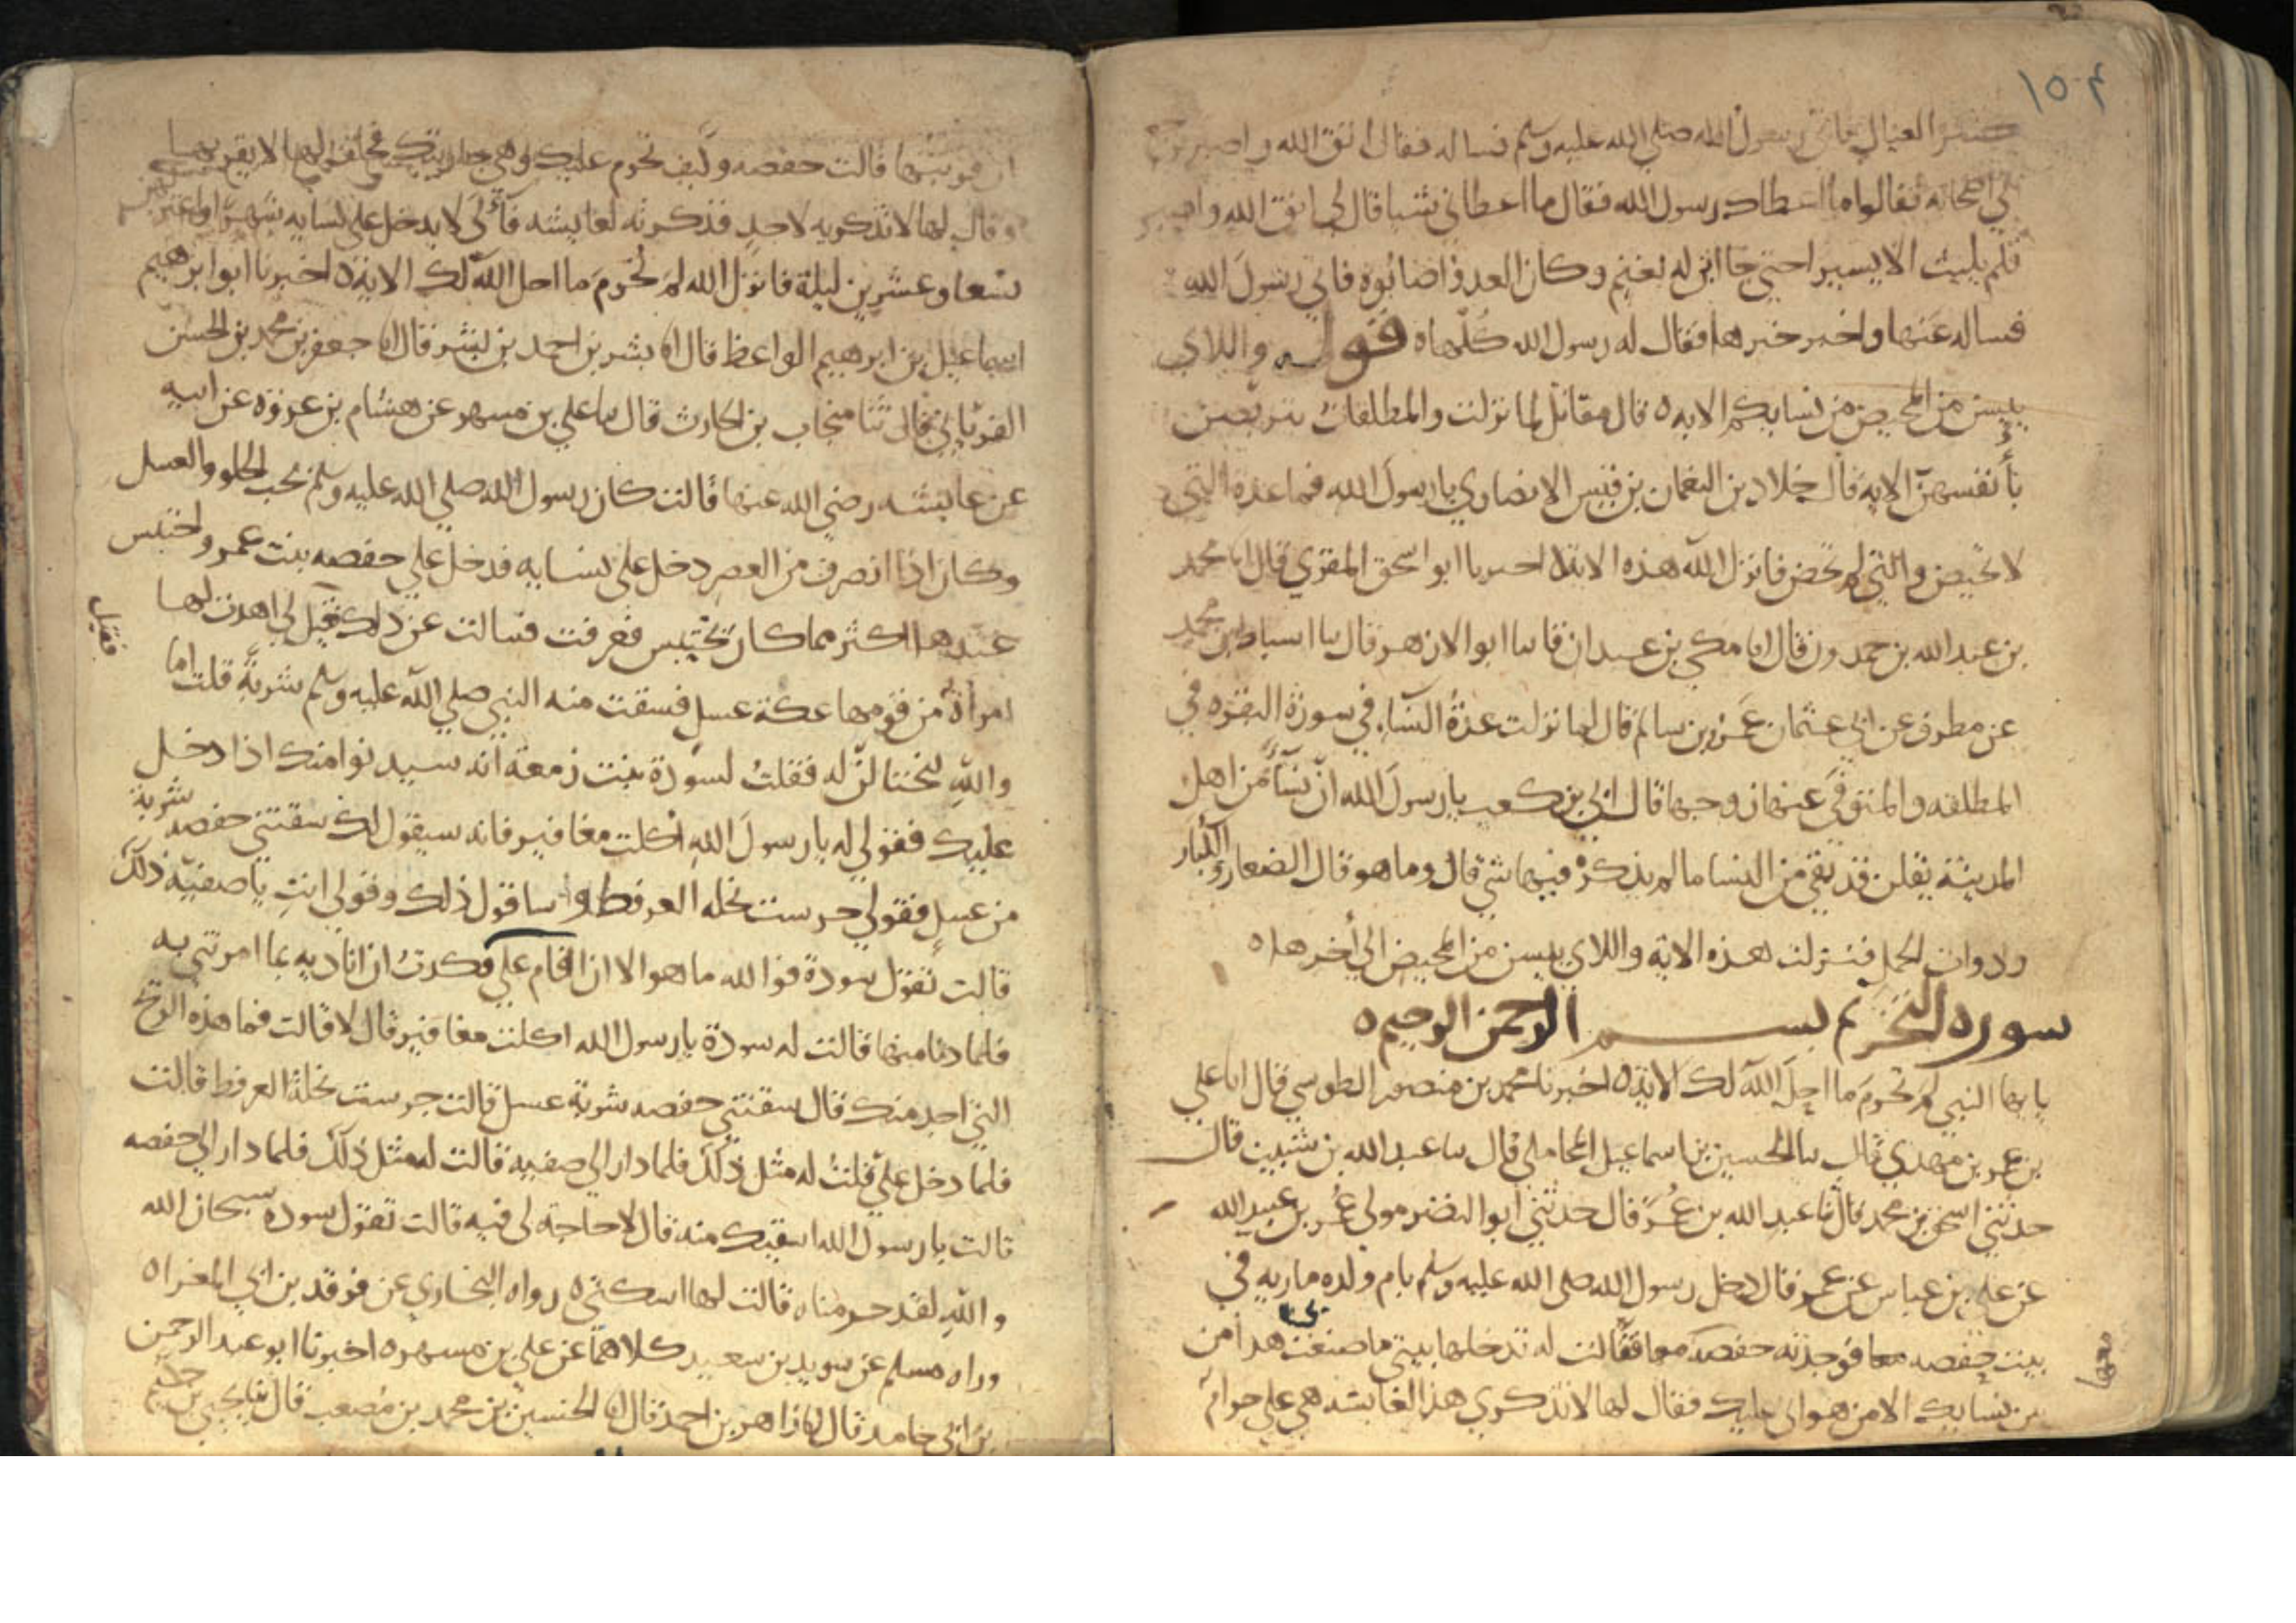 ١٥٠٤
كثير العيال فاتى رسول الله صلى الله عليه وسلم فساله فقال اتق الله واصبر فرجع
الي اصحابه فقالوا ما اعطاك رسول الله فقال ما اعطاني شيا قال لي اتق الله واصبر
فلم يلبث الا يسيرا حتي جا ابن له بغنم وكان العدو اصابوه فاتي رسول الله
فساله عنها واخبره خبرها فقال له رسول الله كلها ه قوله واللاي
ييسن من المحيض من نسايكم الايه ه قال مقاتل لما نزلت والمطلقات يتربصن
بأنفسهن الاية قال خلاد بن النعمان بن قيس الانصاري يا رسول الله فما عدة التي
لا تحيض والتي لم تحض فانزل الله هذه الاية اخبرنا ابو اسحق المقري قال انا محمد
بن عبد الله بن حمدون قال انا مكي بن عبدان قا نا ابو الازهر قال نا اسباط بن محمد
عن مطرف عن ابي عثمان عمرو بن سالم قال لما نزلت عدة النساء في سورة البقره في
المطلقه والمتوفي عنها زوجها قال ابي بن كعب يا رسول الله ان نساء من اهل
المدينة يقلن قد بقي من النسا ما لم يذكر فيها شي قال وما هو قال الصغار والكبار
وذوات الحمل فنزلت هذه الاية واللاي ييسن من المحيض الي أخرها ه
سورة التحريم بسم الله الرحمن الرحيم ه
يايها النبي لم تحرم ما احل الله لك الاية ه اخبرنا محمد بن منصور الطوسي قال انا علي
بن عمر بن مهدي قال نا الحسين بن اسماعيل المحاملي قال نا عبد الله بن شبيب قال
حدثني اسحق بن محمد قال نا عبد الله بن عمر قال حدثني ابو النضر مولى عمر بن عبيد الله
عن علي بن عباس عن عمر قال دخل رسول الله صلى الله عليه وسلم بام ولده ماريه في
بيت حفصه فوجدته حفصه معها فقالت له تدخلها بيتي ما صنعت هذا من
معها
بين نسايك الا من هواني عليك فقال لها لا تذكري هذا لعايشه هي علي حرام
ان قربتها قالت حفصه وكيف تحرم عليك وهي جاريتك فحلف لها لا يقربها
وقال لها لا تذكريه لاحد فذكرته لعايشه فآلى لا يدخل على نسايه شهرا واعتزلهن
تسعا وعشرين ليلة فانزل الله لم تحرم ما احل الله لك الاية ه اخبرنا ابو ابرهيم
اسماعيل بن ابرهيم الواعظ قال انا بشر بن احمد بن بشر قال انا جعفر بن محمد بن الحسن
الفريابي قال ثنا منجاب بن الحارث قال نا علي بن مسهر عن هشام بن عروة عن ابيه
عن عايشه رضي الله عنها قالت كان رسول الله صلي الله عليه وسلم يحب الحلو والعسل
وكان اذا انصرف من العصر دخل على نسايه فدخل علي حفصه بنت عمر واحتبس
عندها اكثر مما كان يحتبس فعرفت فسالت عن ذلك فقيل لي اهدت لها
فقيل
امرأة من قومها عكة عسل فسقت منه النبي صلي الله عليه وسلم شربة قلت اما
والله لنحتالن له فقلت لسودة بنت زمعة انه سيدنوا منك اذا دخل
عليك فقولي له يا رسول الله اكلت مغافير فانه سيقول لك سقتني حفصه شربة
من عسل فقولي جرست نحله العرفط وسا قول ذلك وقولي انت يا صفيه ذلك
قالت تقول سودة فوالله ما هو الا ان قام علي فكدت ان اناديه بما امرتني به
فلما دنا منها قالت له سودة يا رسول الله اكلت مغافير قال لا قالت فما هذه الريح
التي اجد منك قال سقتني حفصه شربة عسل قالت جرست نحله العرفط قالت
فلما دخل علي قلت له مثل ذلك فلما دار الي صفيه قالت له مثل ذلك فلما دار الي حفصه
قالت يا رسول الله اسقيك منه قال لا حاجة لي فيه قالت تقول سودة سبحان الله
والله لقد حرمناه قالت لها اسكتي ه رواه البخاري عن فروة بن ابي المغرا ه
ورواه مسلم عن سويد بن سعيد كلاهما عن علي بن مسهر ه اخبرنا ابو عبد الرحمن
بن ابي حامد قال انا زاهر بن احمد قال انا الحسين بن محمد بن مصعب قال نا يحيي بن حكيم